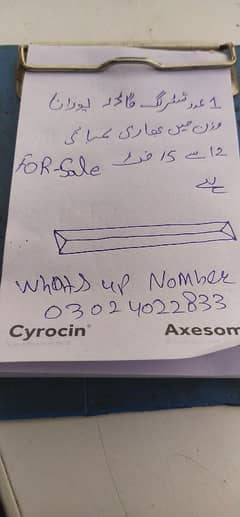 1 عدد شٹرنگ گاڈر پورانا
وزن میں بھاری لمبائی
12 سے 15 فٹ
FOR-Sale
ہے
WhatsUp Nomber
03024022833
Cyrocin
Axesom